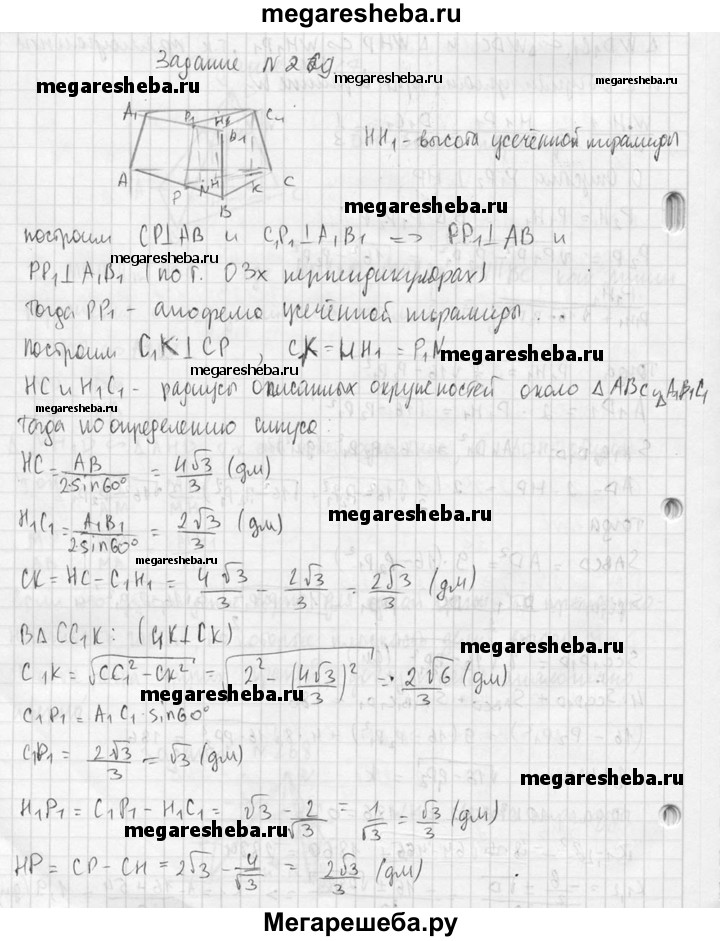 megaresheba.ru
Задание N 269.
megaresheba.ru
megaresheba.ru
A₁ P₁ H₁ B₁ C₁
A P N H B K C
HH₁ - высота усечённой пирамиды
megaresheba.ru
построим CP⊥AB и C₁P₁⊥A₁B₁ => PP₁⊥AB и
megaresheba.ru
PP₁⊥A₁B₁ (по т. О 3х перпендикулярах)
Тогда PP₁ - апофема усечённой пирамиды...
построим C₁K⊥CP, C₁K=HH₁=P₁N
megaresheba.ru
megaresheba.ru
HC и H₁C₁ - радиусы описанных окружностей около ΔABC и ΔA₁B₁C₁
megaresheba.ru
Тогда по определению синуса:
HC = AB / 2·sin60° = 4√3 / 3 (дм)
H₁C₁ = A₁B₁ / 2·sin60° = 2√3 / 3 (дм)
megaresheba.ru
megaresheba.ru
CK = HC - C₁H₁ = 4√3 / 3 - 2√3 / 3 = 2√3 / 3 (дм)
В Δ CC₁K: (C₁K⊥CK)
megaresheba.ru
C₁K = √(CC₁² - CK²) = √(2² - (4√3 / 3)²) = 2√6 / 3 (дм)
megaresheba.ru
C₁P₁ = A₁C₁·sin60°
C₁P₁ = 2√3 / 3 = √3 (дм)
megaresheba.ru
H₁P₁ = C₁P₁ - H₁C₁ = √3 - 2 / √3 = 1 / √3 = √3 / 3 (дм)
megaresheba.ru
HP = CP - CH = 2√3 - 4 / √3 = 2√3 / 3 (дм)
Мегарешеба.ру